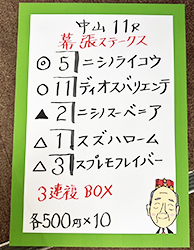 中山 11R
幕張ステークス
◎ 5 ニシノライコウ
○ 11 ディオスバリエンテ
▲ 2 ニシノスーベニア
△ 1 スズハローム
△ 3 スプレモフレイバー
3連複 BOX
各500円×10